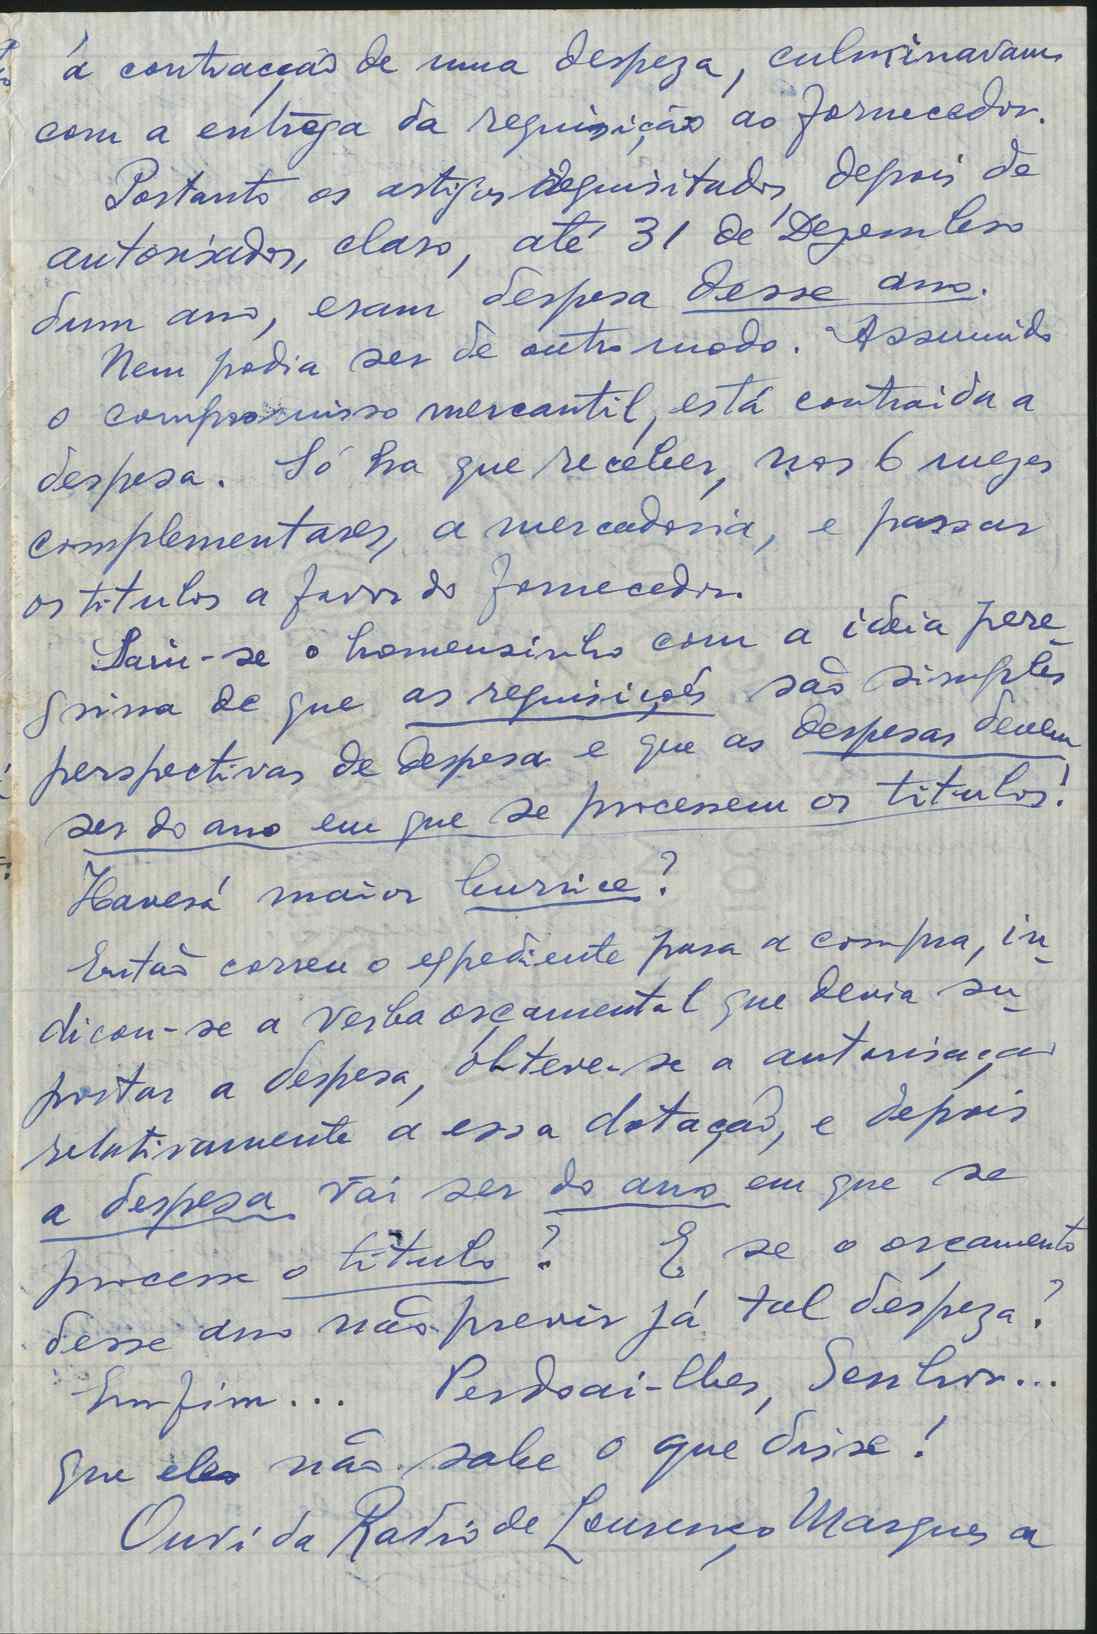 à contracção de uma despeza, culminavam
com a entrega da requisição ao fornecedor.
Portanto os artigos requisitados, depois de
autorisados, claro, até 31 de Dezembro
dum ano, eram despesa desse ano.
Nem podia ser de outro modo. Assumido
o compromisso mercantil, está contraida a
despesa. Só ha que receber, nos 6 mezes
complementares, a mercadoria, e passar
os titulos a favor do fornecedor.
Saiu-se o homensinho com a ideia pere-
grina de que as requisições são simples
perspectivas de despesa e que as despesas devem
ser do ano em que se processem os titulos!
Haverá maior burrice?
Então correu o expediente para a compra, in-
dicou-se a verba orçamental que devia su-
portar a despesa, obteve-se a autorisação
relativamente a essa dotação, e depois
a despesa vai ser do ano em que se
processe o titulo? E se o orçamento
desse ano não previr já tal despeza?
Emfim... Perdoai-lhes, Senhor...
que ele não sabe o que disse!
Ouvi da Radio de Lourenço Marques a